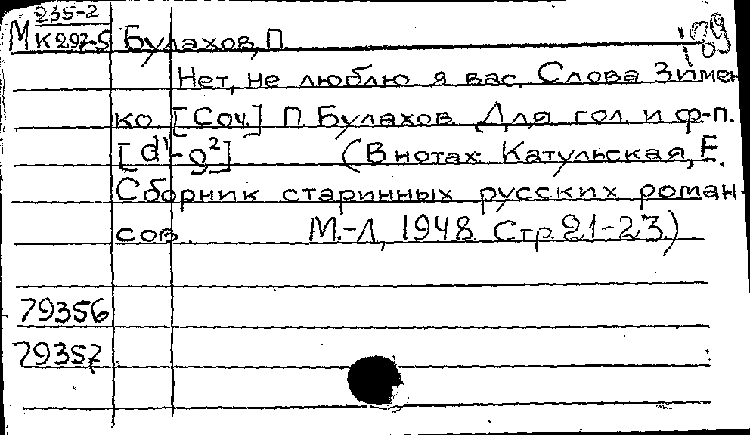 235-2
М К 297-5 Булахов, П. 189
Нет, не люблю я вас. Слова Зимен-
ко [Соч.] П. Булахов. Для гол. и ф-п.
[d¹-g²] (В нотах: Катульская, Е.
Сборник старинных русских роман-
сов. М.-Л., 1948. Стр. 21-23.)
79356
79357